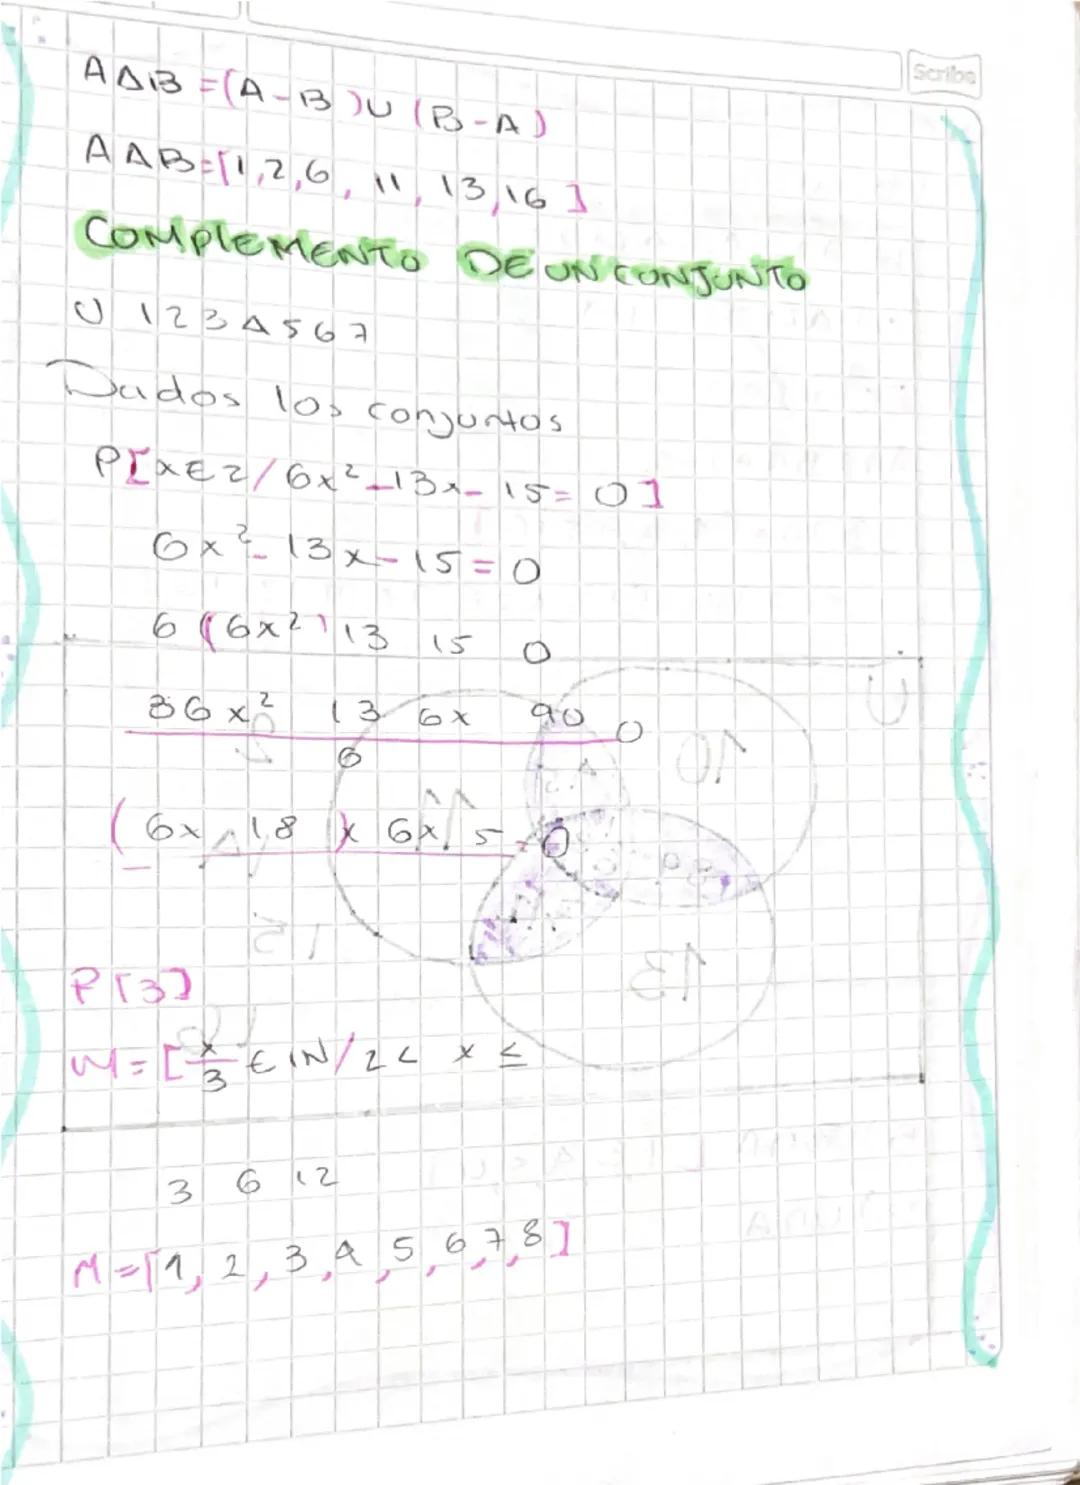 Scribe
A Δ B = (A - B) U (B - A)
A Δ B = [1, 2, 6, 11, 13, 16]
COMPlEMENTO DE UN CONJUNTO
U 1 2 3 4 5 6 7
Dados los conjuntos
P[x ∈ Z / 6x² - 13x - 15 = 0]
6x² - 13x - 15 = 0
6 (6x²) 13 15 0
36x² 13 6x 90 0
6
(6x 18) x 6x 5 = 0
P[3]
M = [x/3 ∈ IN / 2 < x ≤
3 6 12
M = [1, 2, 3, 4, 5, 6, 7, 8]